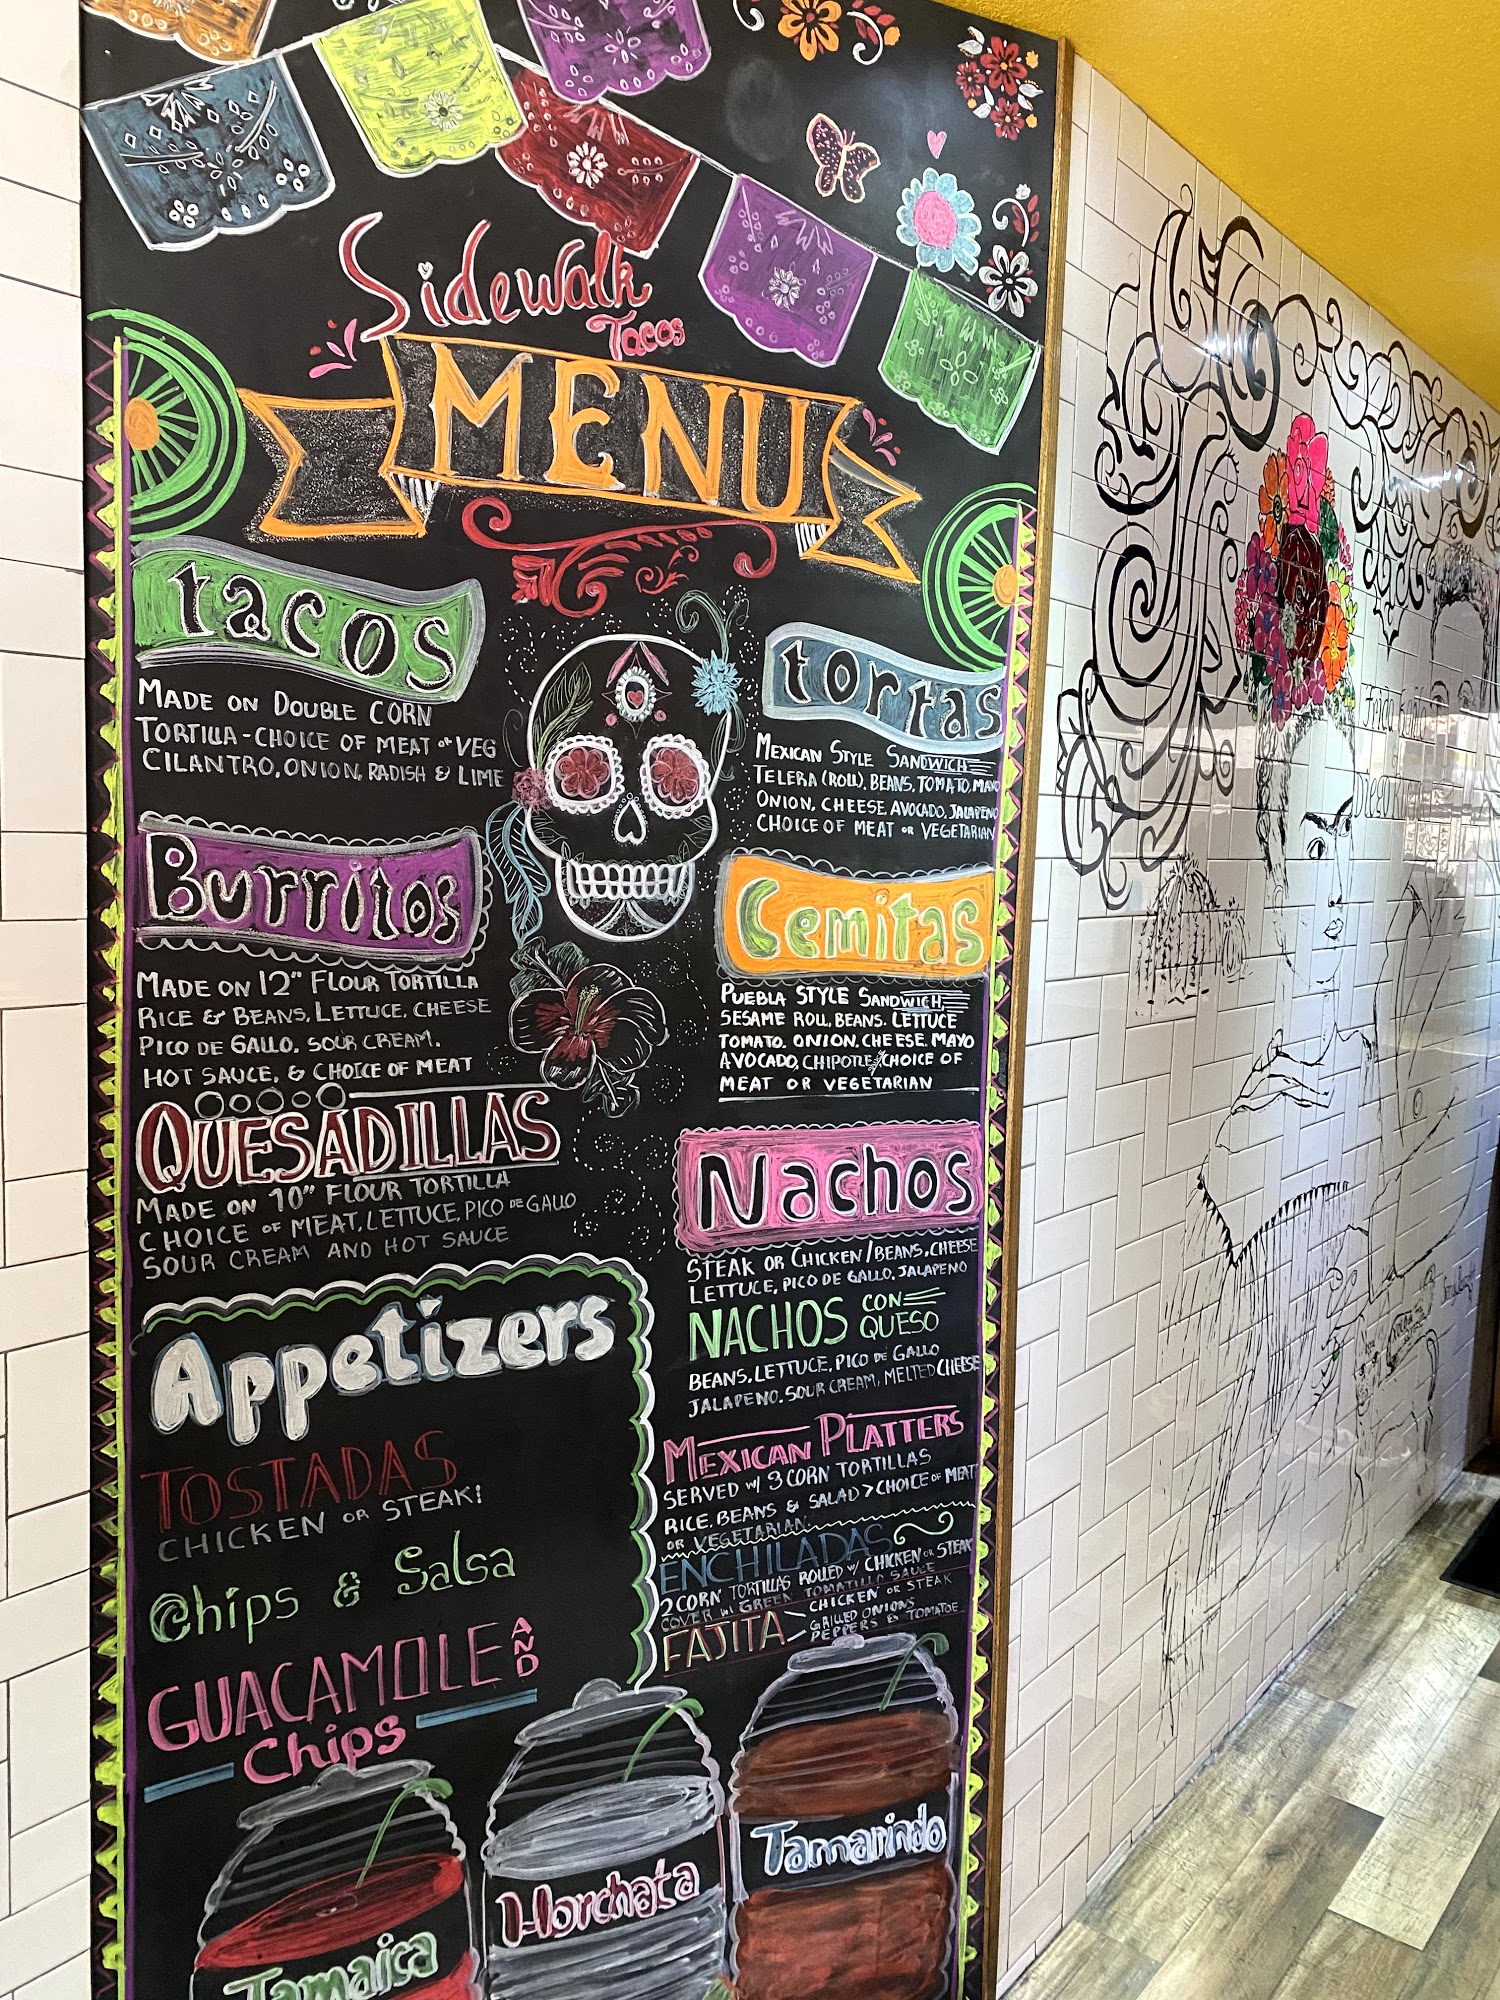 Sidewalk
Tacos
MENU
tacos
MADE ON DOUBLE CORN
TORTILLA - CHOICE OF MEAT or VEG
CILANTRO, ONION, RADISH & LIME
Burritos
MADE ON 12" FLOUR TORTILLA
RICE & BEANS, LETTUCE, CHEESE
PICO DE GALLO, SOUR CREAM.
HOT SAUCE, & CHOICE OF MEAT
QUESADILLAS
MADE ON 10" FLOUR TORTILLA
CHOICE OF MEAT, LETTUCE, PICO DE GALLO
SOUR CREAM AND HOT SAUCE
Appetizers
TOSTADAS
CHICKEN OR STEAK!
Chips & Salsa
GUACAMOLE AND
Chips
tortas
MEXICAN STYLE SANDWICH
TELERA (ROLL), BEANS, TOMATO, MAYO
ONION, CHEESE, AVOCADO, JALAPENO
CHOICE OF MEAT OR VEGETARIAN
Cemitas
PUEBLA STYLE SANDWICH
SESAME ROLL, BEANS, LETTUCE
TOMATO, ONION, CHEESE, MAYO
AVOCADO, CHIPOTLE, CHOICE OF
MEAT OR VEGETARIAN
Nachos
STEAK OR CHICKEN/BEANS, CHEESE
LETTUCE, PICO DE GALLO, JALAPENO
NACHOS CON QUESO
BEANS, LETTUCE, PICO DE GALLO
JALAPENO, SOUR CREAM, MELTED CHEESE
MEXICAN PLATTERS
SERVED W/ 3 CORN TORTILLAS
RICE, BEANS & SALAD > CHOICE OF MEAT
OR VEGETARIAN
ENCHILADAS
2 CORN TORTILLAS ROLLED W/ CHICKEN OR STEAK
COVER W/ GREEN TOMATILLO SAUCE
FAJITA
CHICKEN OR STEAK
GRILLED ONIONS
PEPPERS & TOMATOE
Tamaica
Horchata
Tamarindo